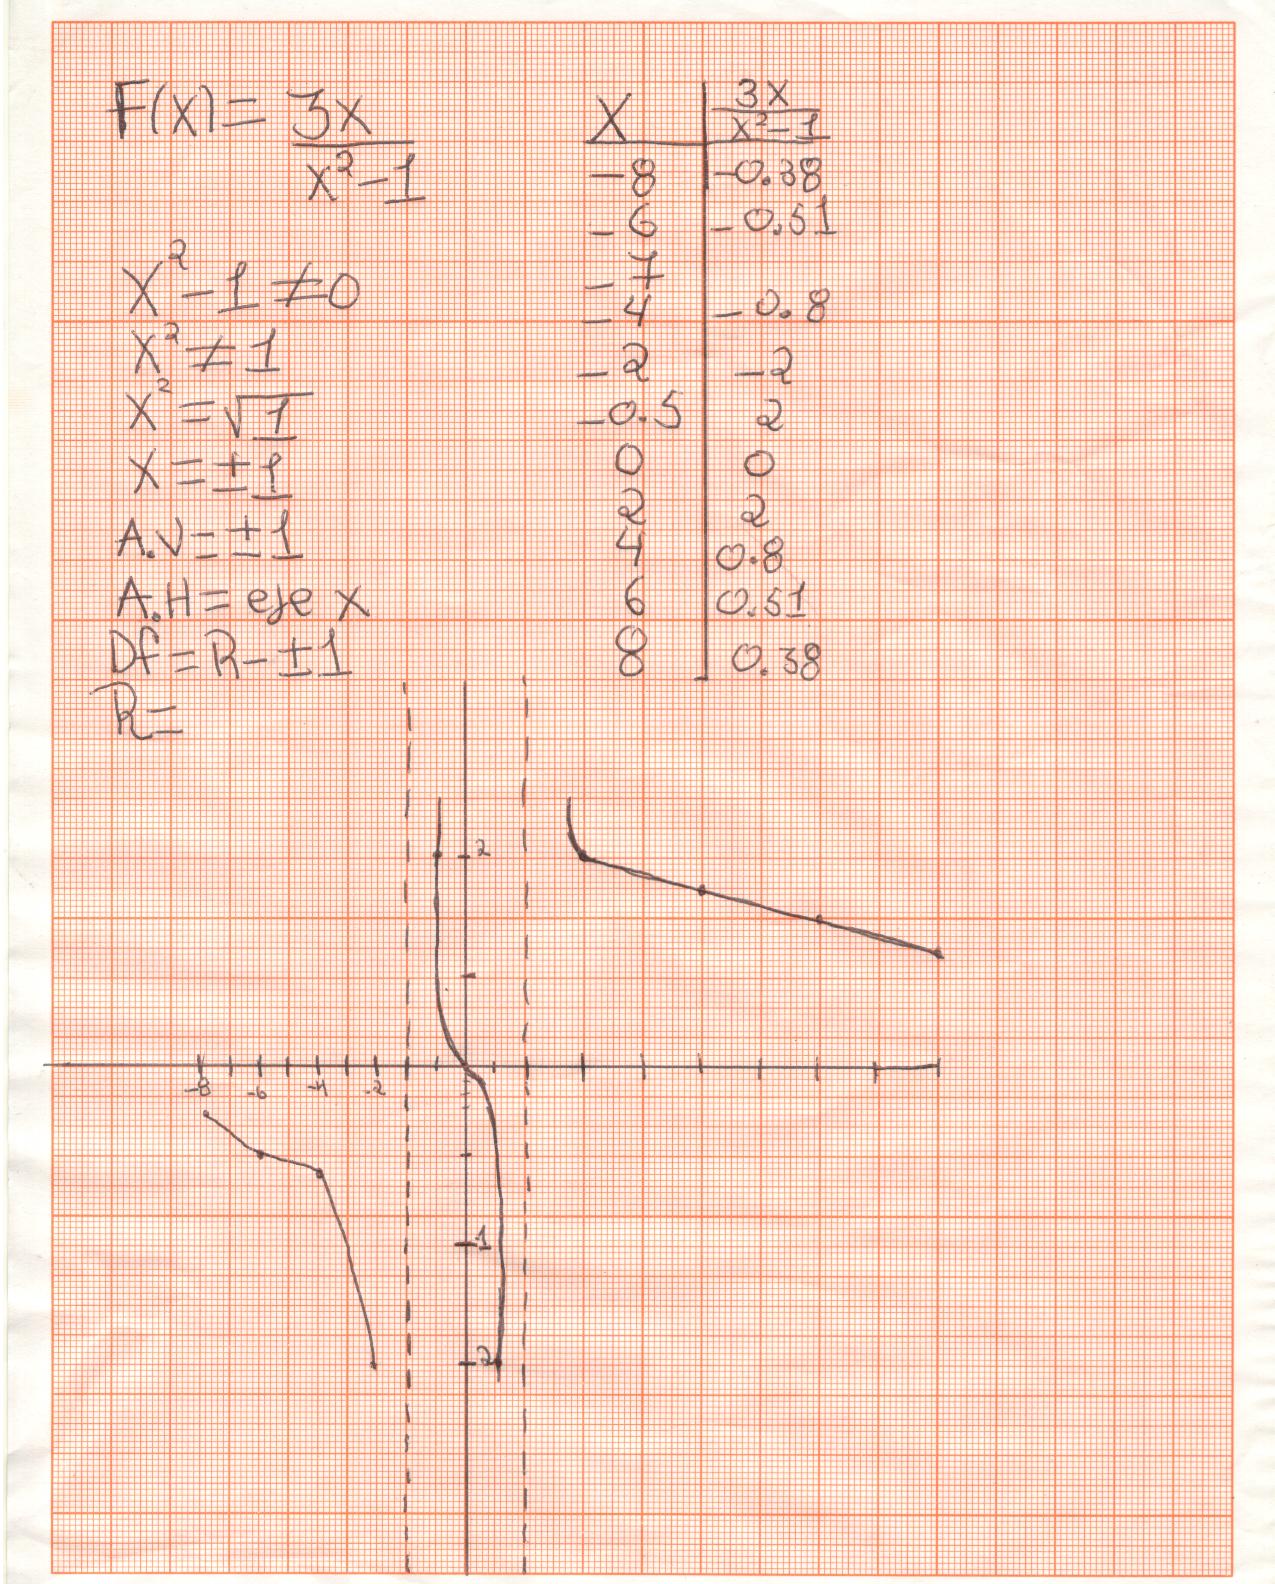 F(x) = 3x
x² - 1
x² - 1 ≠ 0
x² ≠ 1
x² = √1
x = ±1
A.V = ±1
A.H = eje x
Df = R - ±1
R =
X | 3x
x² - 1
-8 | -0.38
-6 | -0.51
-7
-4 | -0.8
-2 | -2
-0.5 | 2
0 | 0
2 | 2
4 | 0.8
6 | 0.51
8 | 0.38
2
-8 -6 -4 -2
1
2